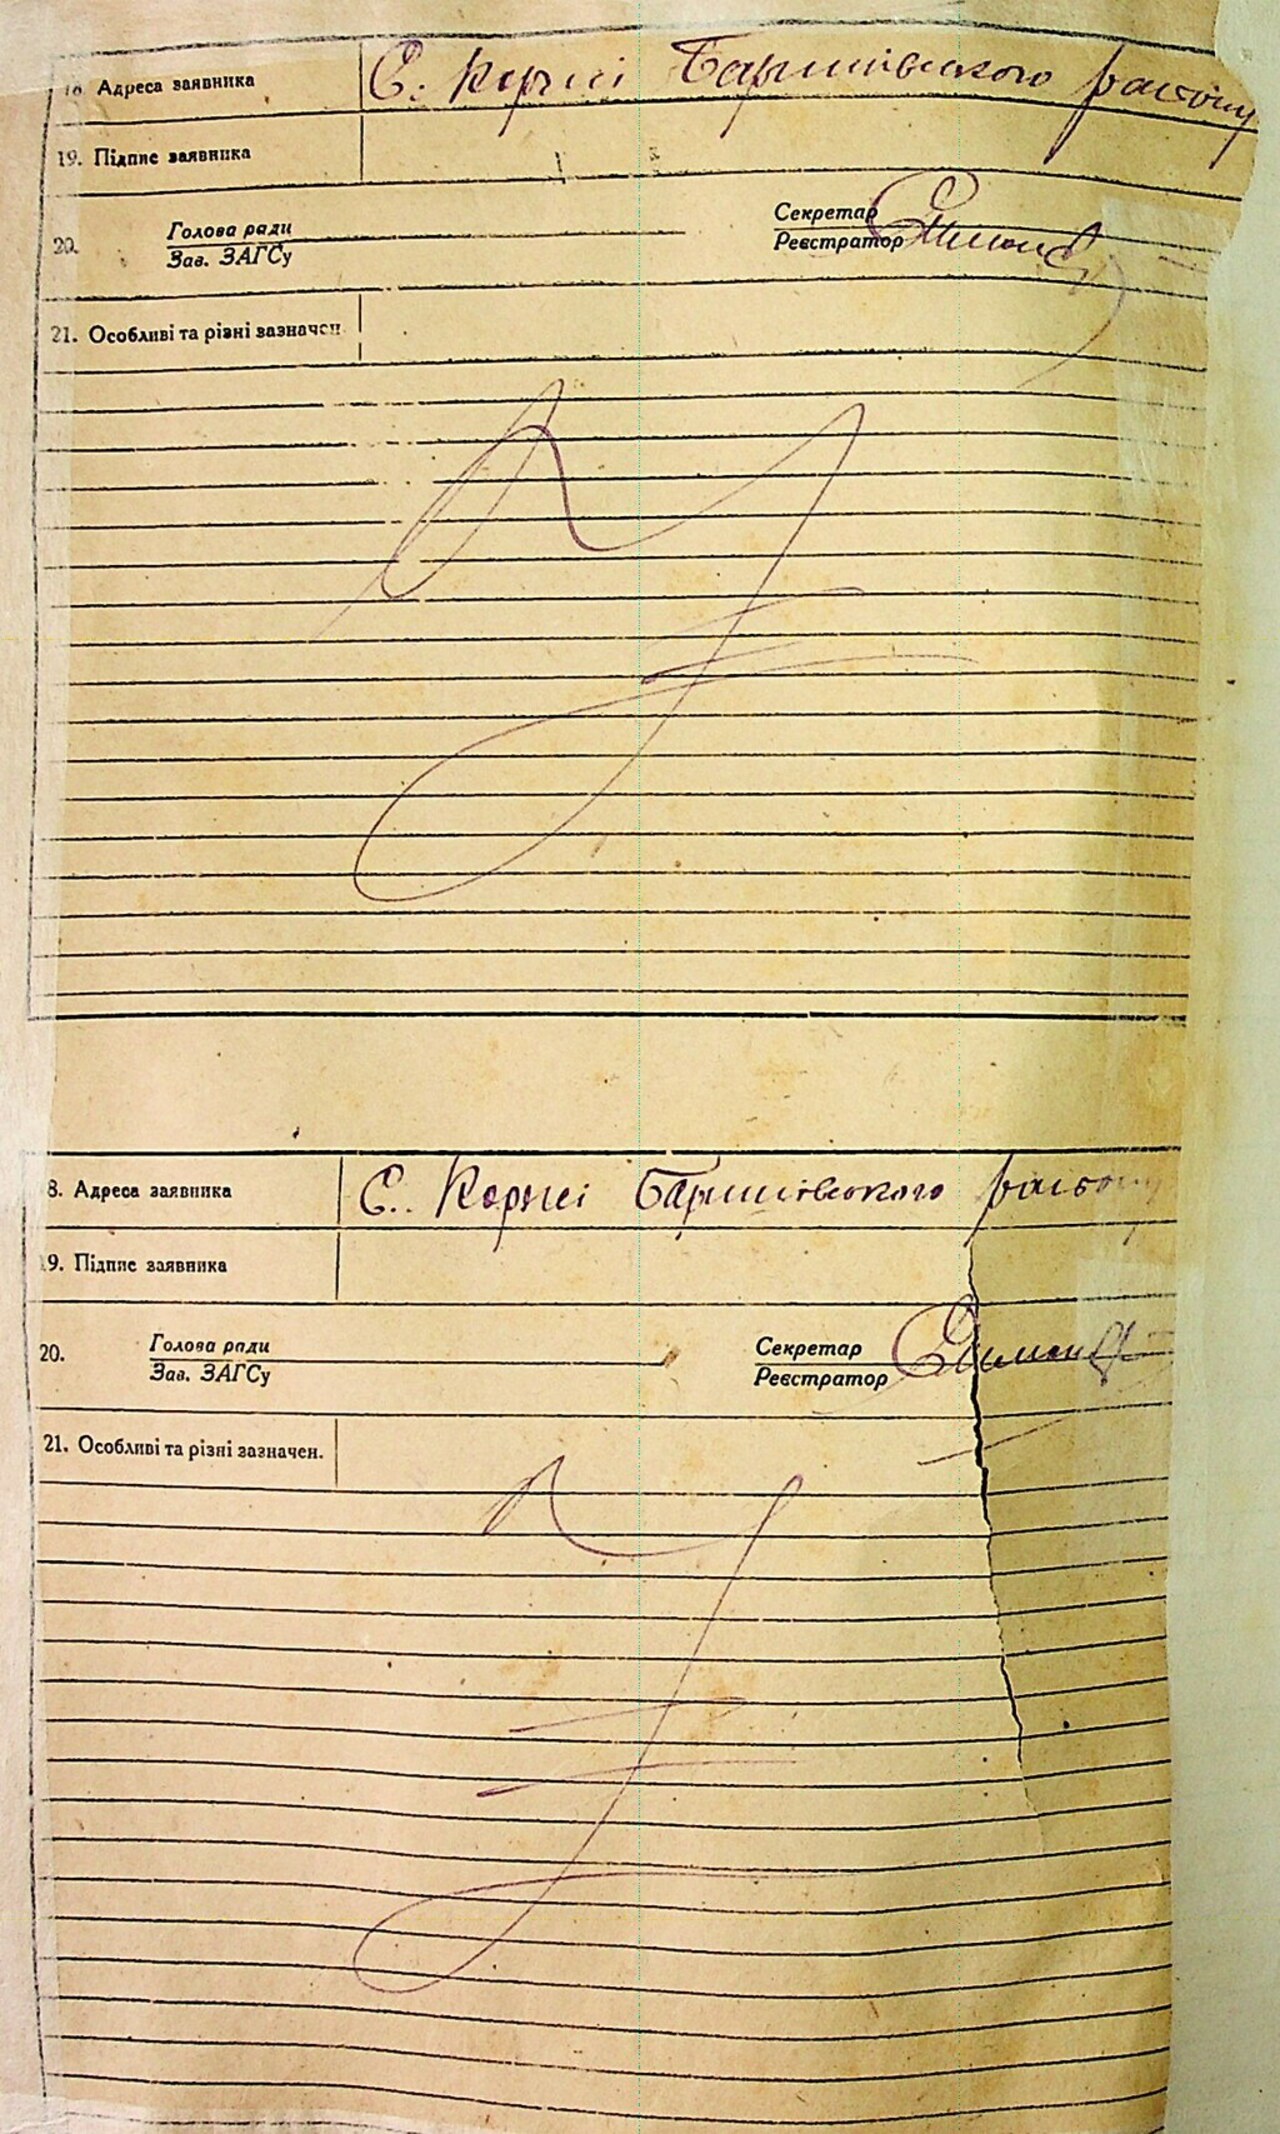 18. Адреса заявника С. Коржі Баришівського району
19. Підпис заявника
20. Голова ради Секретар
Зав. ЗАГСу Реєстратор
21. Особливі та різні зазначен.
8. Адреса заявника С. Коржі Баришівського району
9. Підпис заявника
20. Голова ради Секретар
Зав. ЗАГСу Реєстратор
21. Особливі та різні зазначен.